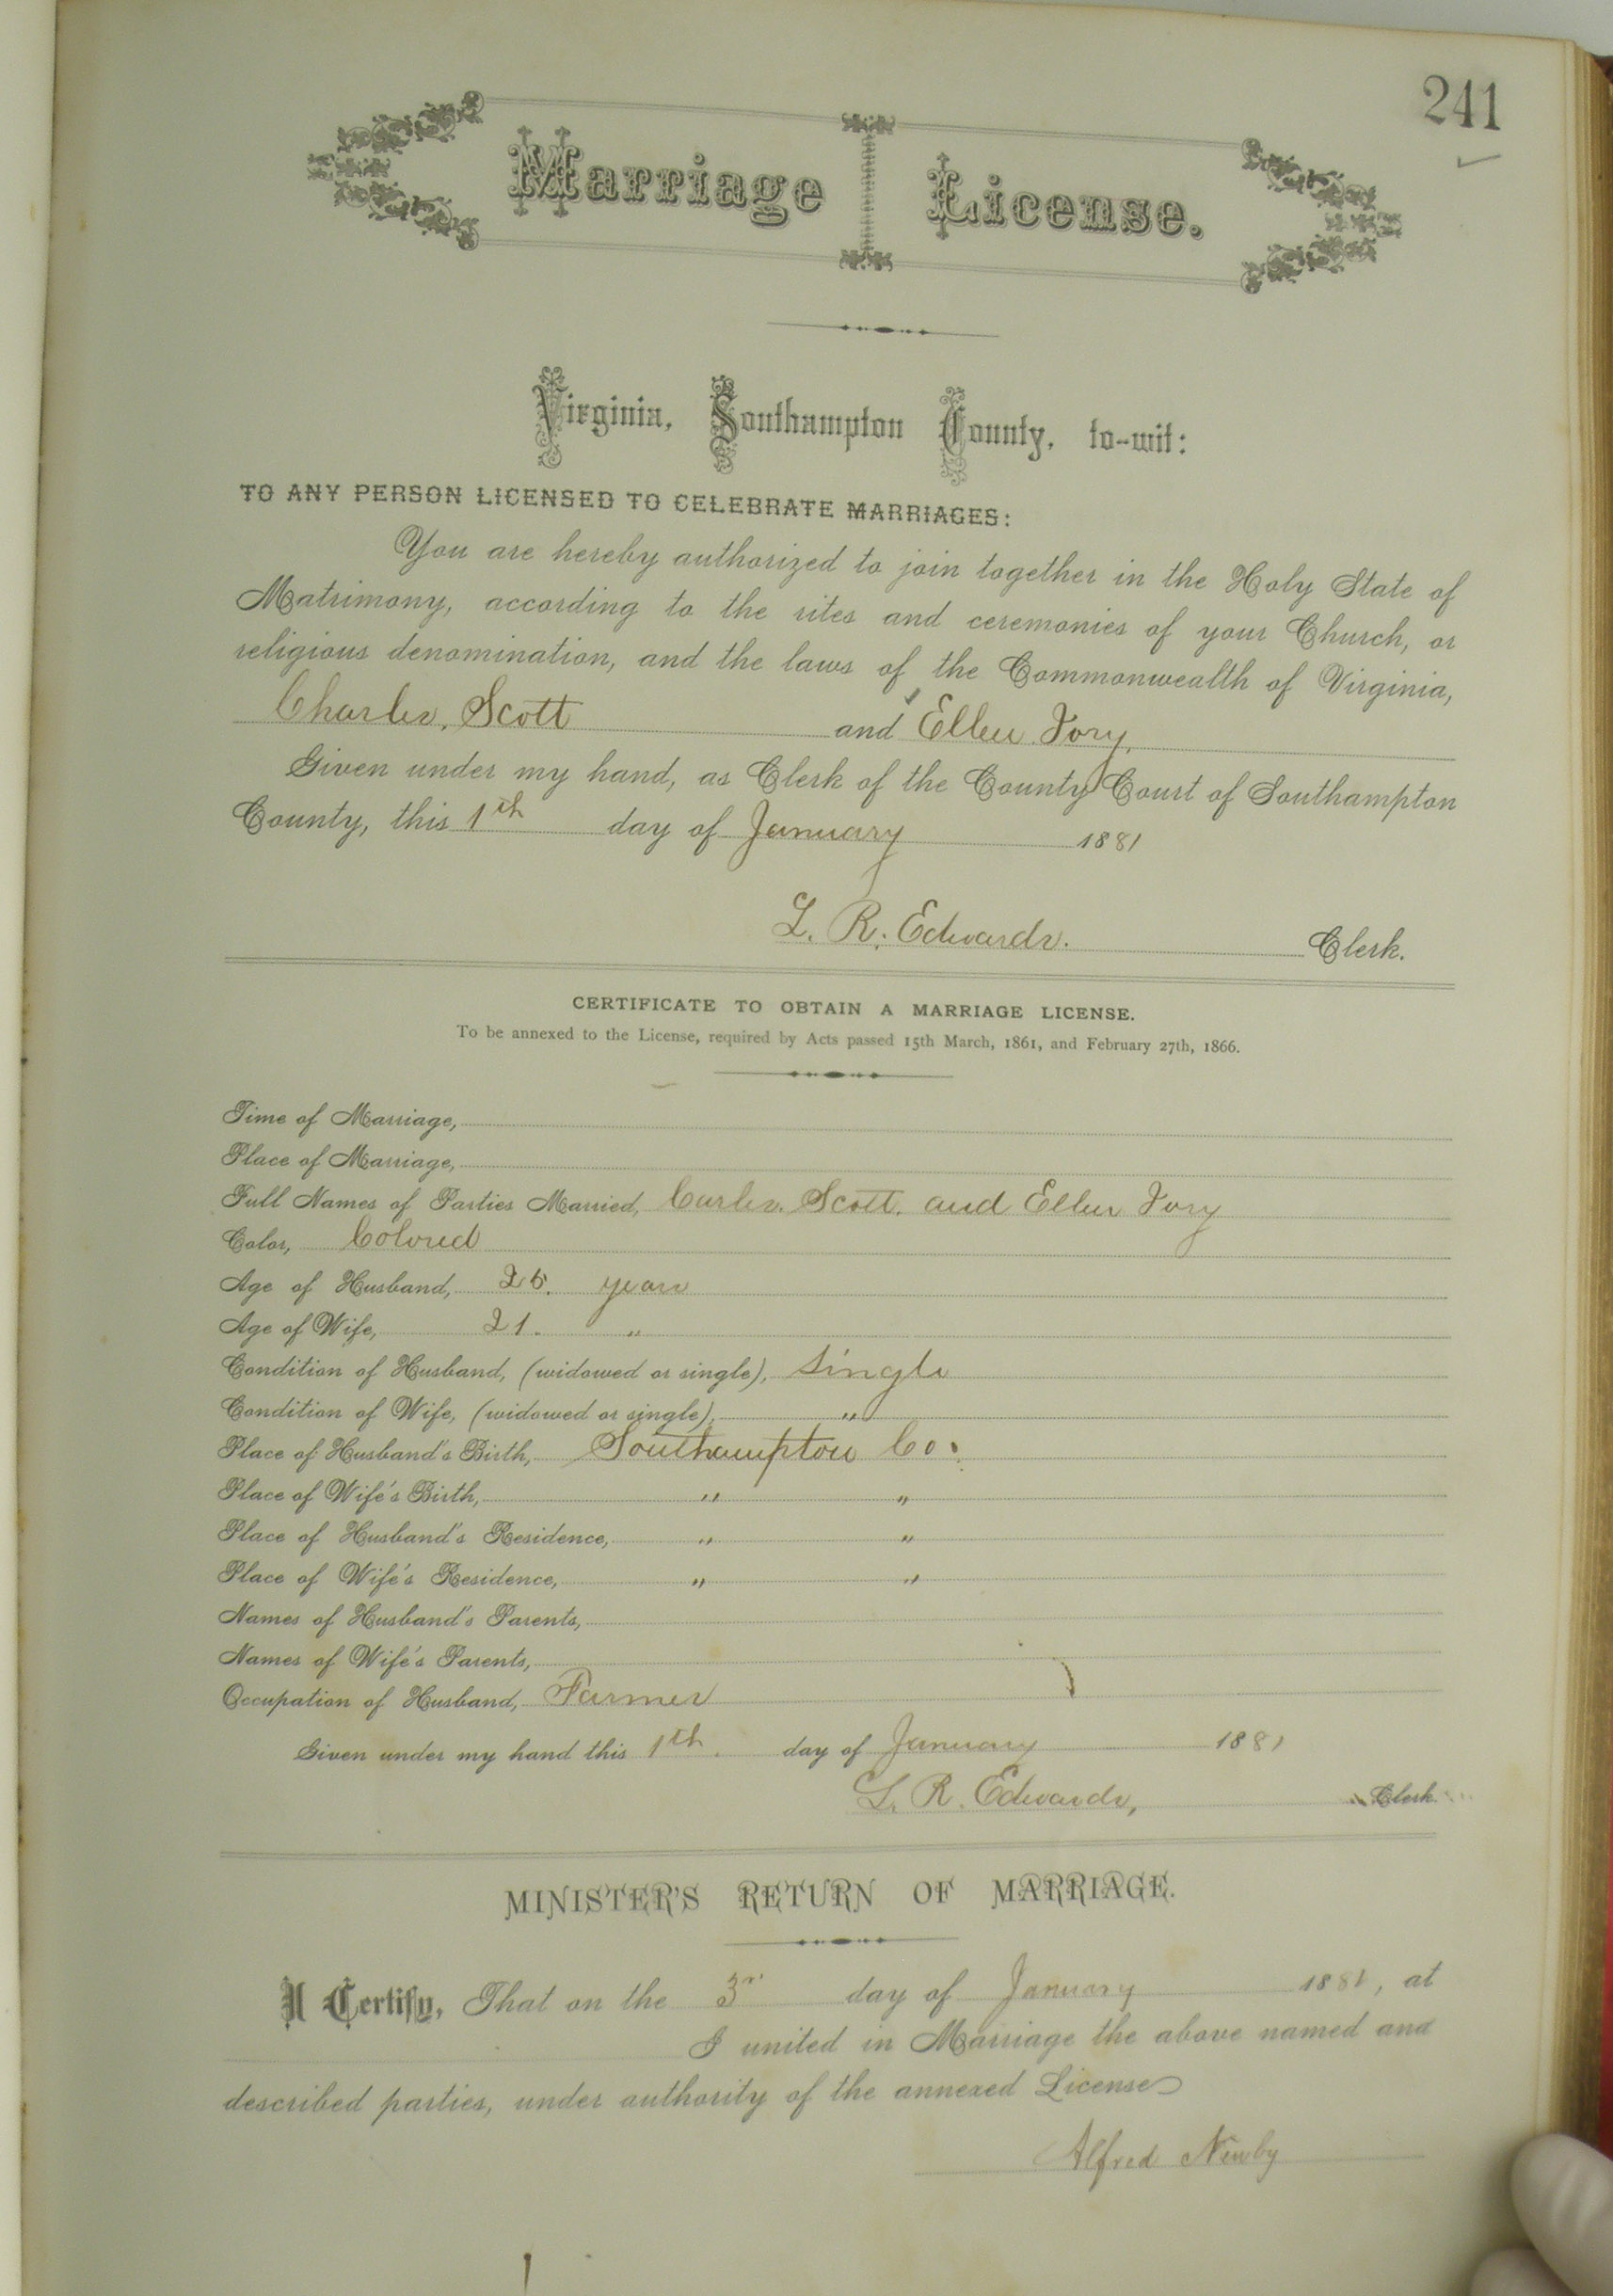 241
Marriage License.
Virginia, Southampton County, to-wit:
TO ANY PERSON LICENSED TO CELEBRATE MARRIAGES:
You are hereby authorized to join together in the Holy State of
Matrimony, according to the rites and ceremonies of your Church, or
religious denomination, and the laws of the Commonwealth of Virginia,
Charles Scott and Ellen Ivry
Given under my hand, as Clerk of the County Court of Southampton
County, this 1th day of January 1881
L. R. Edwards. Clerk.
CERTIFICATE TO OBTAIN A MARRIAGE LICENSE.
To be annexed to the License, required by Acts passed 15th March, 1861, and February 27th, 1866.
Time of Marriage,
Place of Marriage,
Full Names of Parties Married, Carles. Scott. and Ellen Ivry
Color, Colored
Age of Husband, 25. years
Age of Wife, 21. "
Condition of Husband, (widowed or single), Single
Condition of Wife, (widowed or single), "
Place of Husband's Birth, Southampton Co.
Place of Wife's Birth, " "
Place of Husband's Residence, " "
Place of Wife's Residence, " "
Names of Husband's Parents,
Names of Wife's Parents,
Occupation of Husband, Farmer
Given under my hand this 1th. day of January 1881
L. R. Edwards, Clerk
MINISTER'S RETURN OF MARRIAGE.
I Certify, That on the 3r day of January 1881, at
I united in Marriage the above named and
described parties, under authority of the annexed License
Alfred Newby